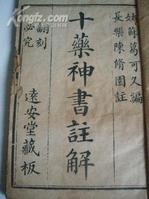 姑蘇葛可久編
長樂陳修園註
十藥神書註解
翻刻
必究
遠安堂藏板